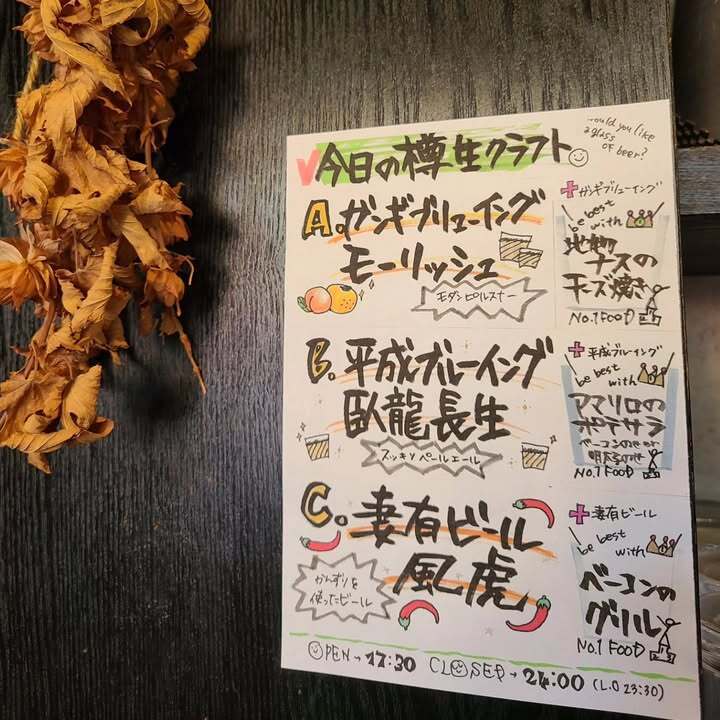 今日の樽生クラフト
would you like
a glass
OF beer?
A. ガンギブリューイング
モーリッシュ
モダンピルスナー
+ガンギブリューイング
be best
be with
ナスの
チーズ焼き
No.1 FOOD
B. 平成ブルーイング
臥龍長生
スッキリペールエール
+平成ブルーイング
be best
with
アマリロの
ポテサラ
ベーコンのせor
明太のせ
No.1 FOOD
C. 妻有ビール
風虎
かんずりを
使ったビール
+妻有ビール
be best
with
ベーコンの
グリル
No.1 FOOD
OPEN→17:30 CLOSED→24:00 (L.O 23:30)